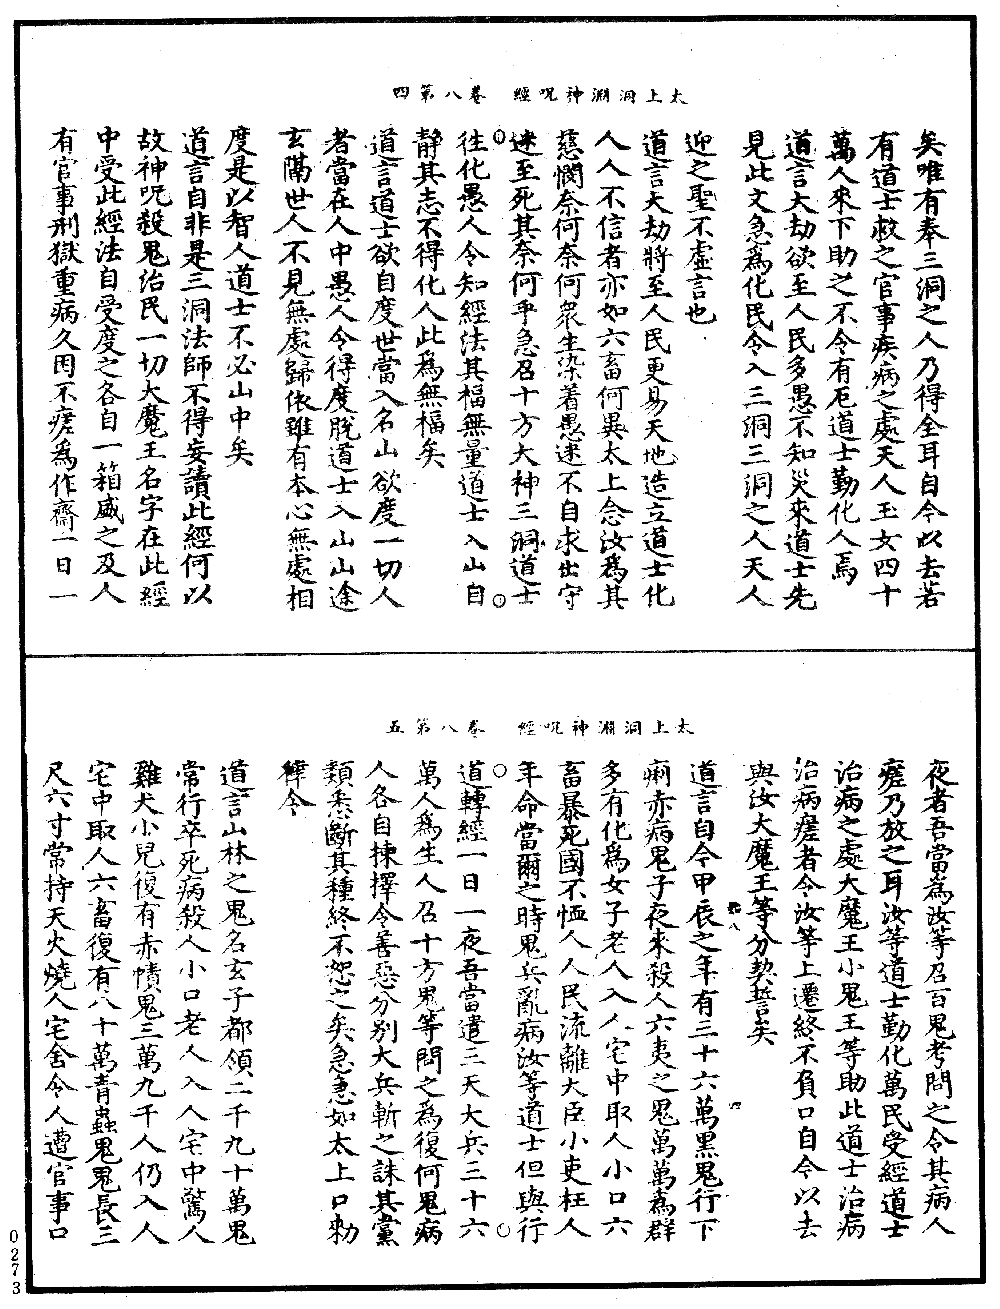 太上洞淵神呪經　卷八第四
矣唯有奉三洞之人乃得全耳自今以去若
有道士救之官事疾病之處天人玉女四十
萬人來下助之不令有厄道士勤化人焉
道言大劫欲至人民多愚不知災來道士先
見此文急爲化民令入三洞三洞之人天人
迎之聖不虛言也
道言大劫將至人民更易天地造立道士化
人人不信者亦如六畜何異太上念汝爲其
慈憫奈何奈何衆生染着愚迷不自求出守
迷至死其奈何乎急召十方大神三洞道士
往化愚人令知經法其福無量道士入山自
靜其志不得化人此爲無福矣
道言道士欲自度世當入名山欲度一切人
者當在人中愚人令得度脫道士入山山途
玄隔世人不見無處歸依雖有本心無處相
度是以智人道士不必山中矣
道言自非是三洞法師不得妄讀此經何以
故神呪殺鬼治民一切大魔王名字在此經
中受此經法自受度之各自一箱盛之及人
有官事刑獄重病久困不瘥爲作齋一日一
太上洞淵神呪經　卷八第五
夜者吾當爲汝等召百鬼考問之令其病人
瘥乃放之耳汝等道士勤化萬民受經道士
治病之處大魔王小鬼王等助此道士治病
治病瘥者令汝等上遷終不負口自今以去
與汝大魔王等分契誓矣
道言自今甲辰之年有三十六萬黑鬼行下
痢赤病鬼子夜來殺人六夷之鬼萬萬爲群
多有化爲女子老人入人宅中取人小口六
畜暴死國不恤人人民流離大臣小吏枉人
年命當爾之時鬼兵亂病汝等道士但與行
道轉經一日一夜吾當遣三天大兵三十六
萬人爲生人召十方鬼等問之爲復何鬼病
人各自揀擇令善惡分別大兵斬之誅其黨
類悉斷其種終不恕之矣急急如太上口勑
律令
道言山林之鬼名玄子都領二千九十萬鬼
常行卒死病殺人小口老人入人宅中驚人
雞犬小兒復有赤幘鬼三萬九千人仍入人
宅中取人六畜復有八十萬青蟲鬼鬼長三
尺六寸常持天火燒人宅舍令人遭官事口
0273